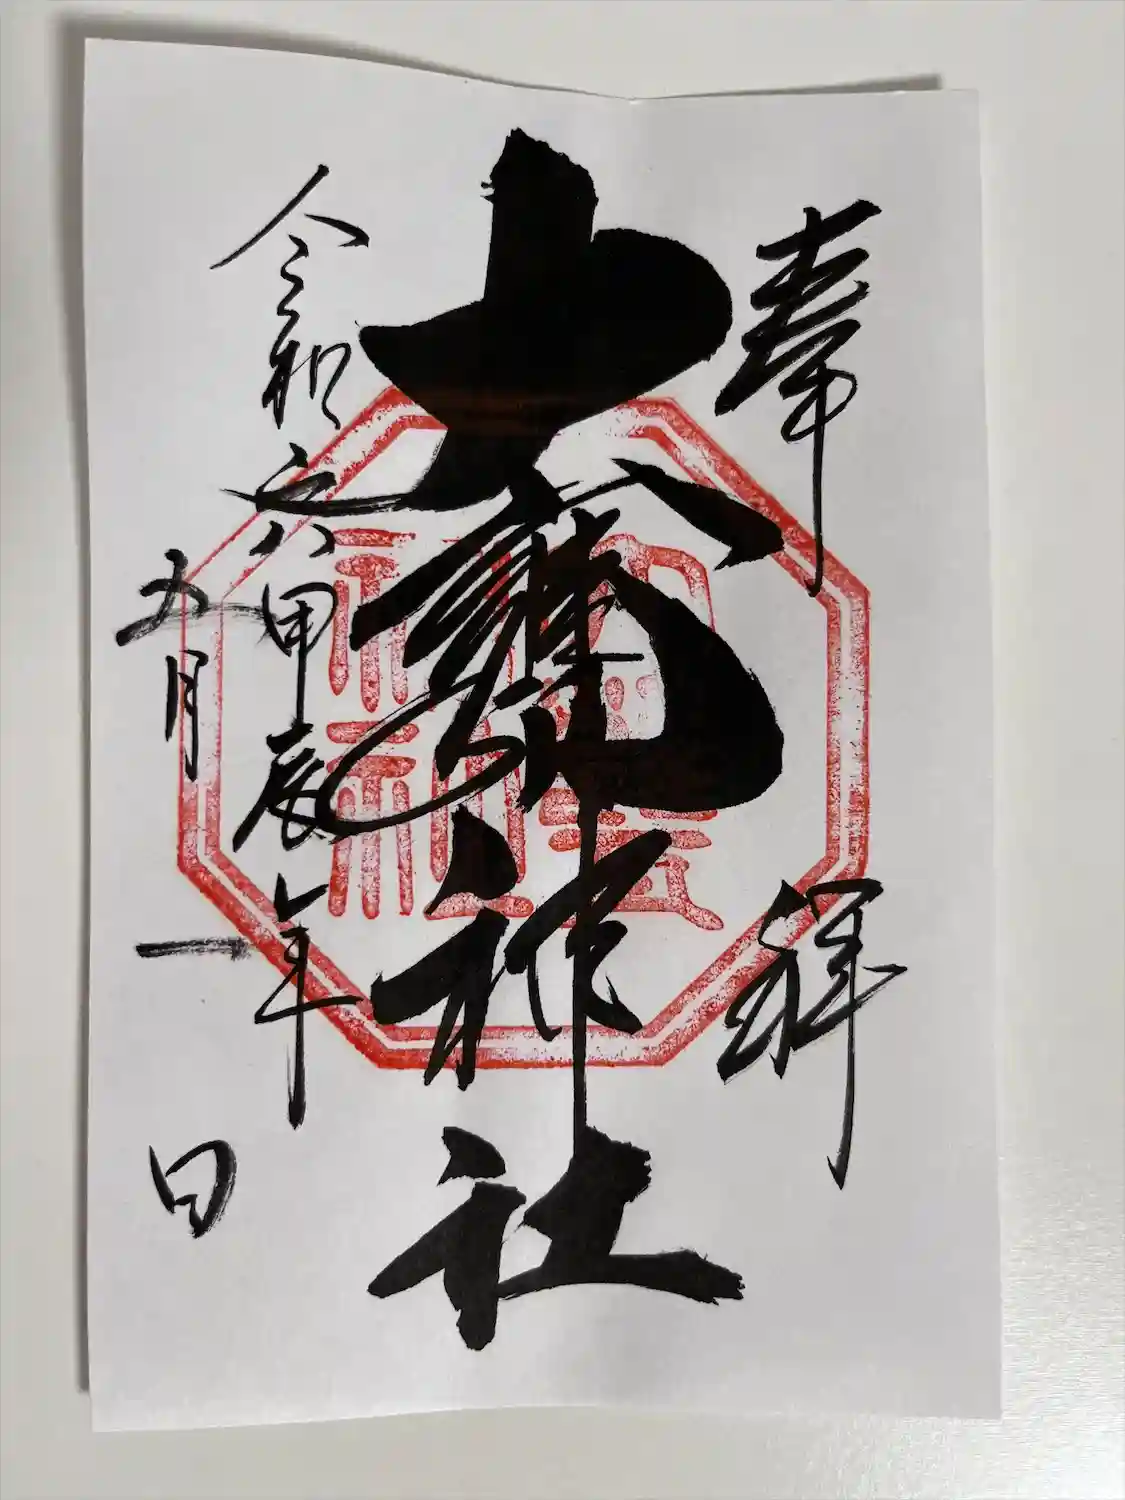 奉拝
大甕神社
令和六甲辰年
五月一日